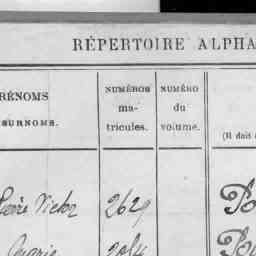 RÉPERTOIRE ALPHA
RÉNOMS
SURNOMS.
NUMÉROS
ma-
tricules.
NUMÉRO
du
volume.
(Il doit
Victor 2629
2084